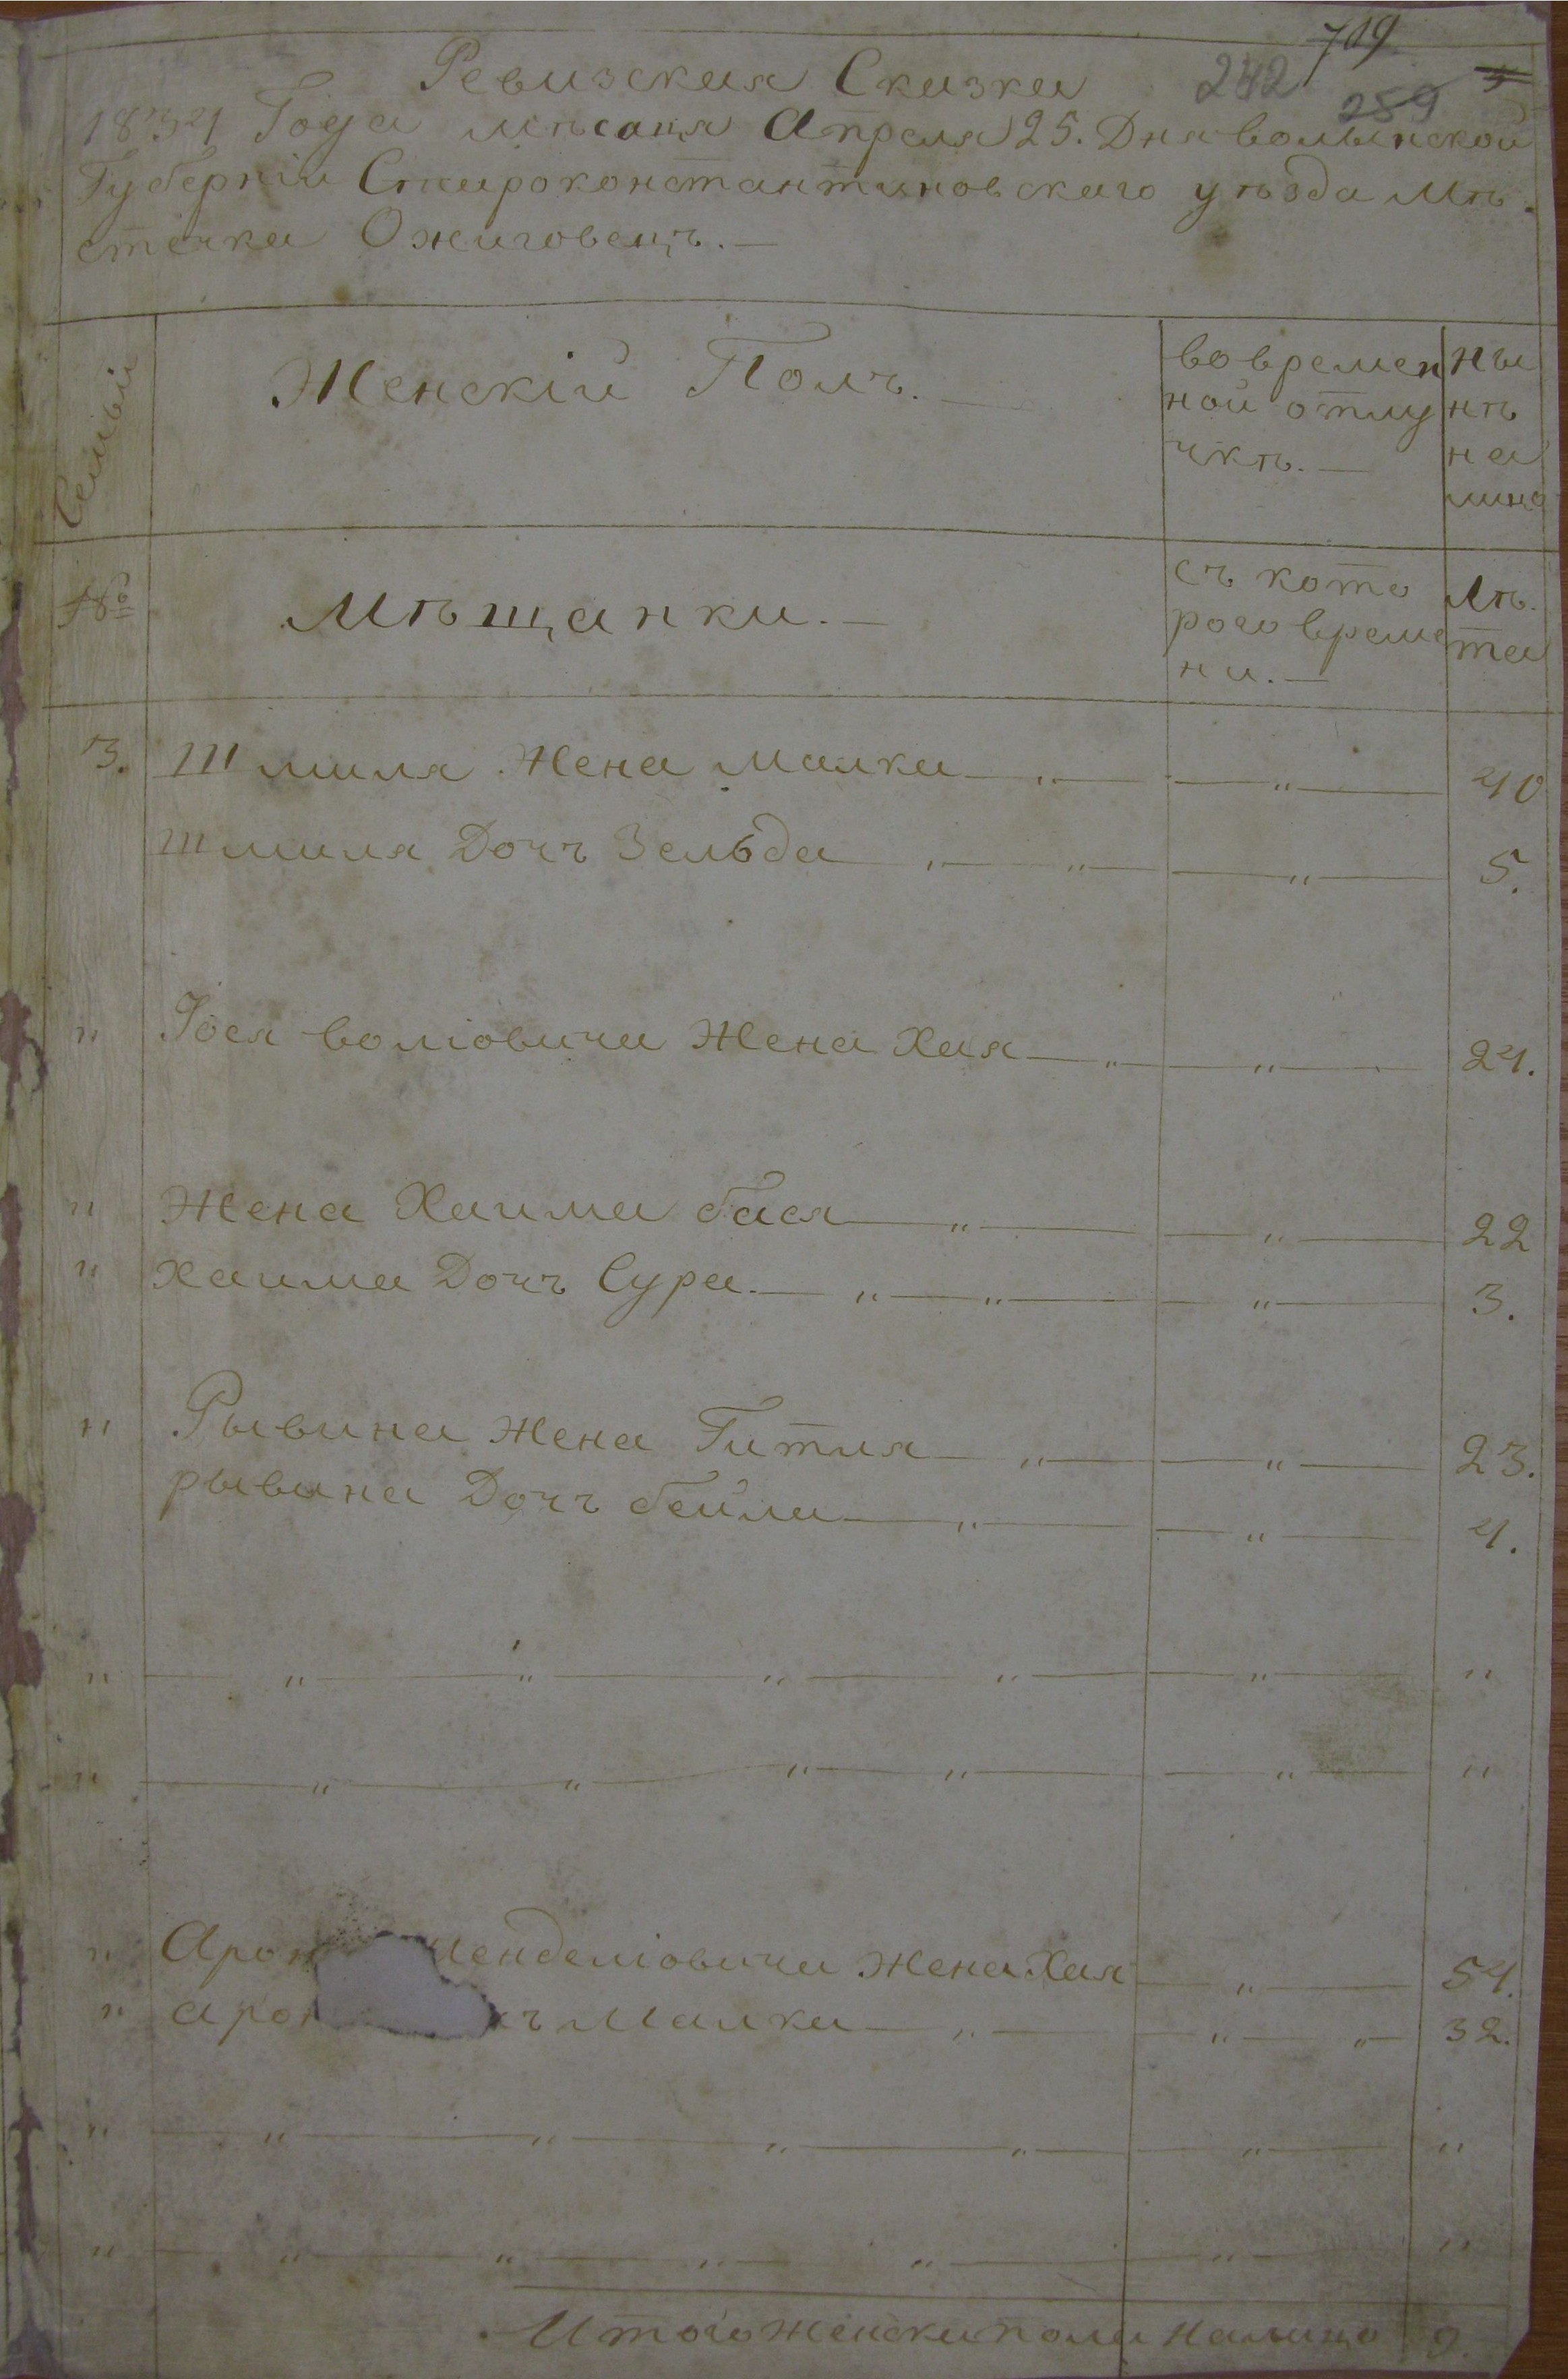 719
Ревизская Сказка 242 259
1834 Года мѣсаця Апреля 25. Дня волынской
Губерніи Староконстантиновскаго уѣзда Мѣ.
стечка Ожиговецъ.—
Семьи
Женскій Полъ.—
вовремен
ной отлу
чкѣ.—
ны
нѣ
на
лицо
№
Мѣщанки.—
съ кото
рого време
ни.—
Лѣ.
та
3. Шмиля Жена малка — „ — — „ — 40
шмиля Дочъ Зельда „ — „ — — „ — 5.
„ Йося волювича Жена Хая — „ — „ — 24.
„ Жена Хаима бася — „ — — „ — 22
„ Хаима Дочъ Сура. — „ — „ — — „ — 3.
„ Рывина Жена Гитля — „ — — „ — 23.
рывина Дочъ бейла — „ — — „ — 4.
„ — „ — „ — „ — „ — — „ — „
„ — „ — „ — „ — „ — — „ — „
„ Арон менделіовича Жена Хая — „ — 54.
„ арон чъ Малка — „ — — „ — „ — 32.
„ — „ — „ — „ — „ — — „ — „
„ — „ — „ — „ — „ — — „ — „
Итого женска пола налицо 9.